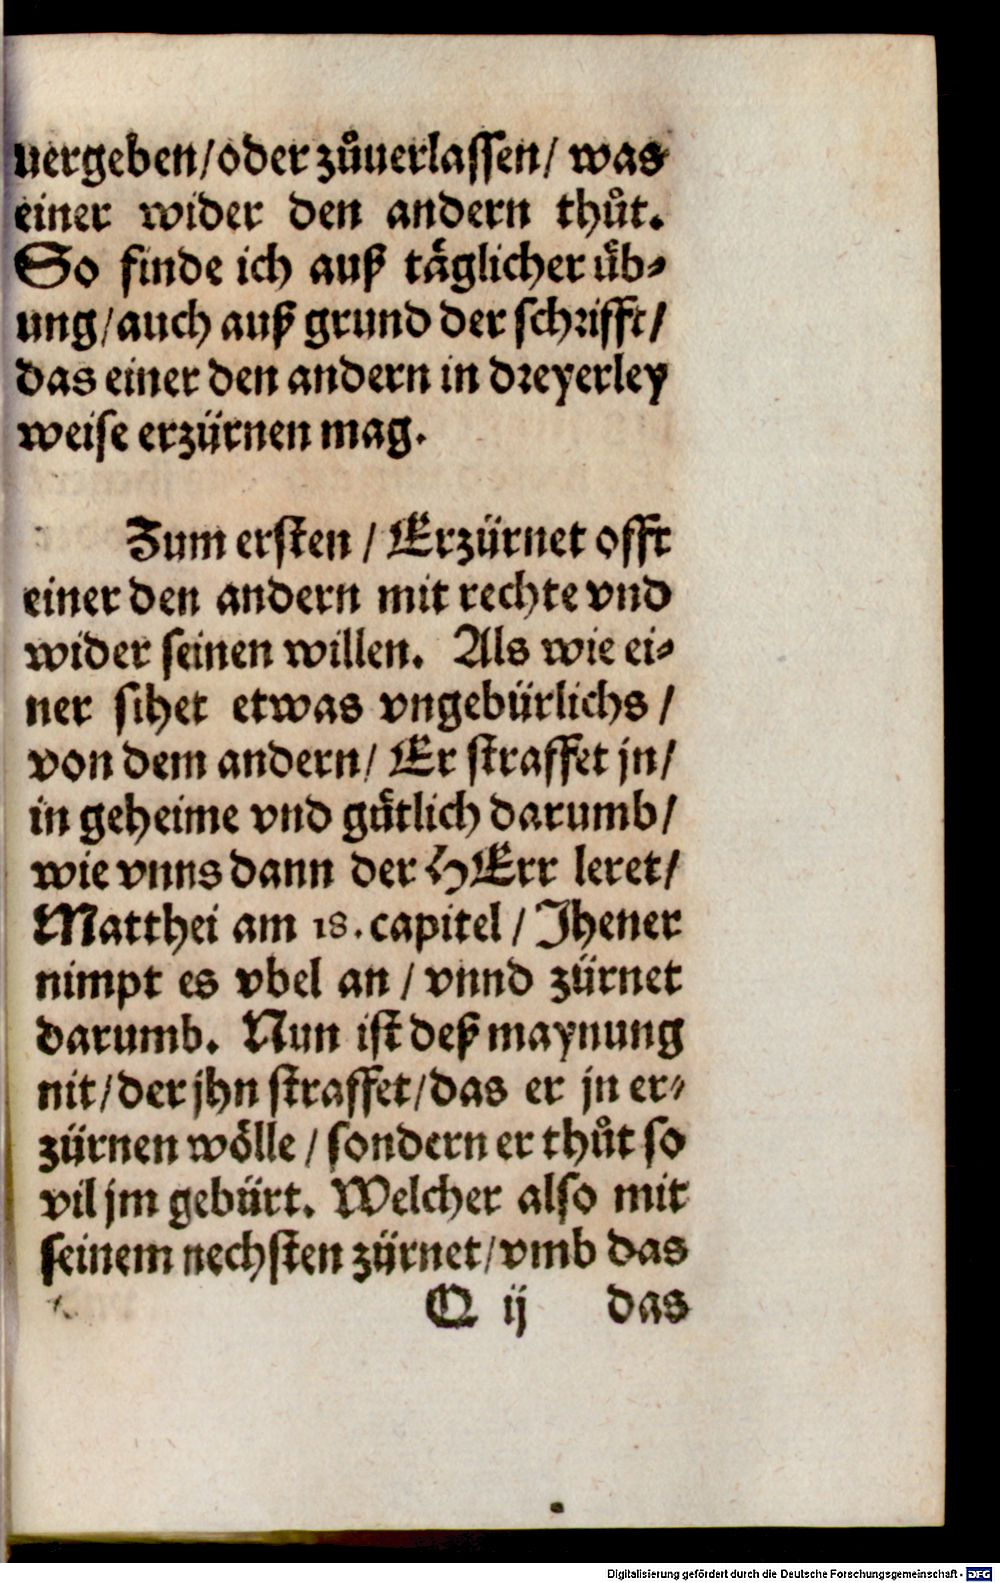 uergeben/oder zůuerlassen/ was
einer wider den andern thůt.
So finde ich auß täglicher üb-
ung/auch auß grund der schrifft/
das einer den andern in dreyerley
weise erzürnen mag.
Zum ersten / Erzürnet offt
einer den andern mit rechte vnd
wider seinen willen. Als wie ei-
ner sihet etwas vngebürlichs /
von dem andern/ Er straffet jn/
in geheime vnd gütlich darumb/
wie vnns dann der HErr leret/
Matthei am 18. capitel / Jhener
nimpt es vbel an / vnnd zürnet
darumb. Nun ist deß maynung
nit/der jhn straffet/das er jn er-
zürnen wölle / sondern er thůt so
vil jm gebürt. Welcher also mit
seinem nechsten zürnet/vmb das
Q ij das
Digitalisierung gefördert durch die Deutsche Forschungsgemeinschaft - DFG